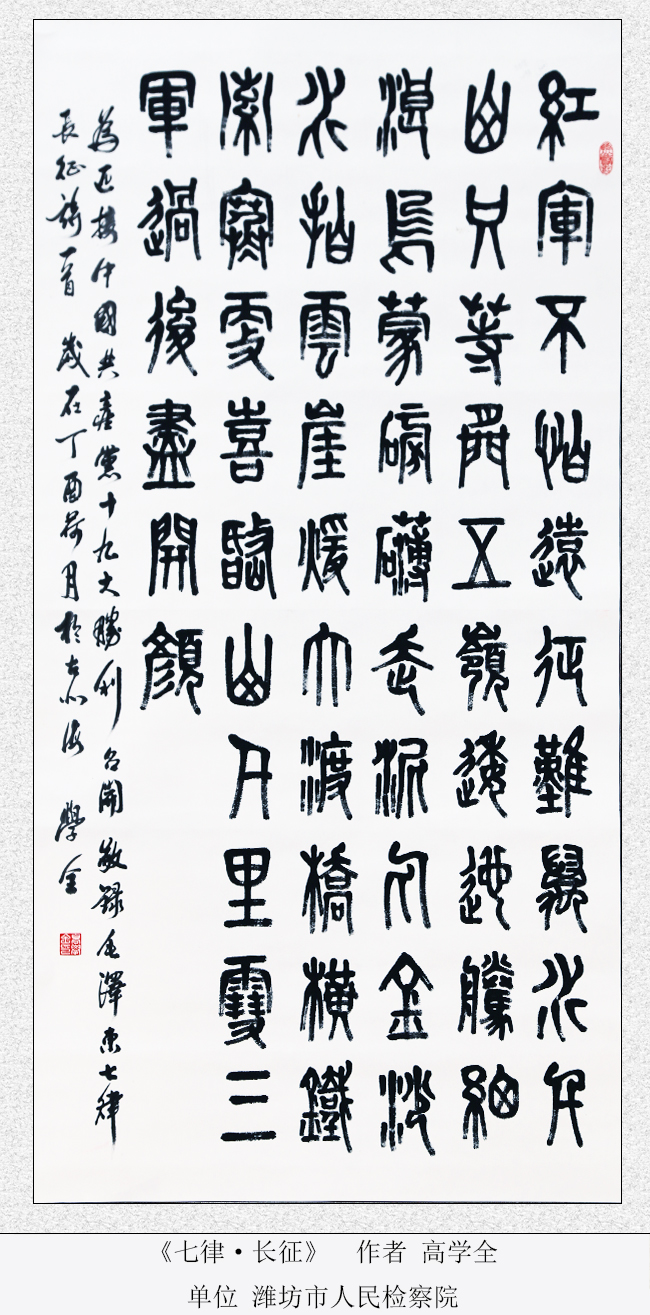 紅軍不怕遠征難萬水千
山只等閒五嶺逶迤騰細
浪烏蒙磅礴走泥丸金沙
水拍雲崖煖大渡橋橫鐵
索寒更喜岷山千里雪三
軍過後盡開顏
為迎接中國共產黨十九大勝利召開敬錄毛澤東七律
長征詩一首 歲在丁酉荷月於古北海 學全
《七律·长征》 作者 高学全
单位 潍坊市人民检察院